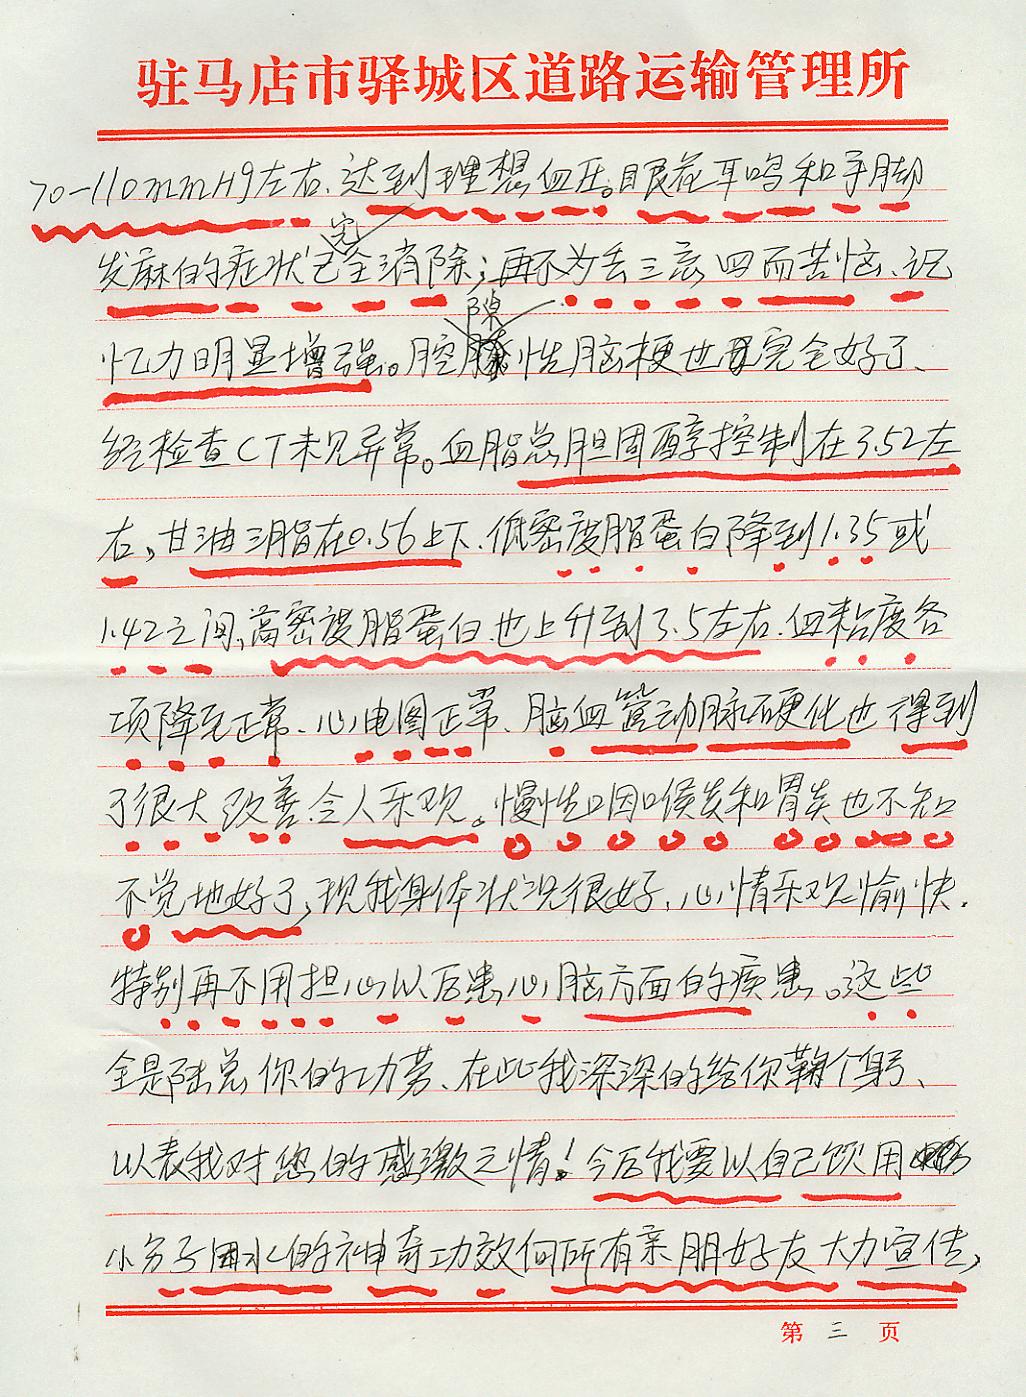 驻马店市驿城区道路运输管理所
70-110mmHg左右、达到理想血压。眼花耳鸣和手脚
完
发麻的症状已全消除；再不为丢三忘四而苦恼、记
隙
忆力明显增强。腔性脑梗也完全好了、
经检查CT未见异常。血脂总胆固醇控制在3.52左
右，甘油三脂在0.56上下、低密度脂蛋白降到1.35或
1.42之间，高密度脂蛋白也上升到3.5左右.血粘度各
项降至正常、心电图正常、脑血管动脉硬化也得到
了很大改善令人乐观。慢性咽喉炎和胃炎也不知
不觉地好了，现我身体状况很好、心情乐观愉快.
特别再不用担心以后患心脑方面的疾患。这些
全是陆总你的功劳、在此我深深的给你鞠个躬、
以表我对您的感激之情！今后我要以自己饮用
小分子团水的神奇功效向所有亲朋好友大力宣传，
第三页